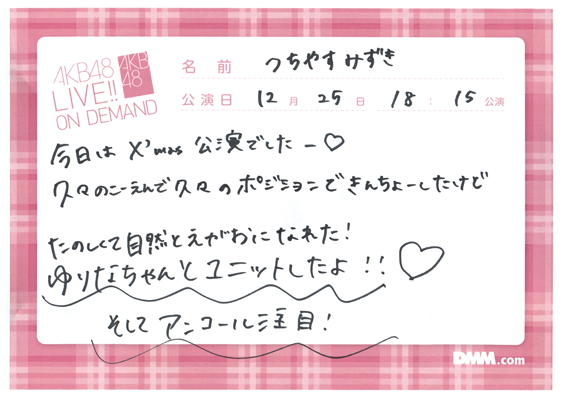 AKB48
LIVE!!
ON DEMAND
AKB
48
名前 つちやすみずき
公演日 12月25日 18:15公演
今日は X'mas 公演でしたー♡
久々のこーえんで久々のポジションできんちょーしたけど
たのしくて自然とえがおになれた!
ゆりなちゃんとユニットしたよ!!♡
そしてアンコール注目!
DMM.com